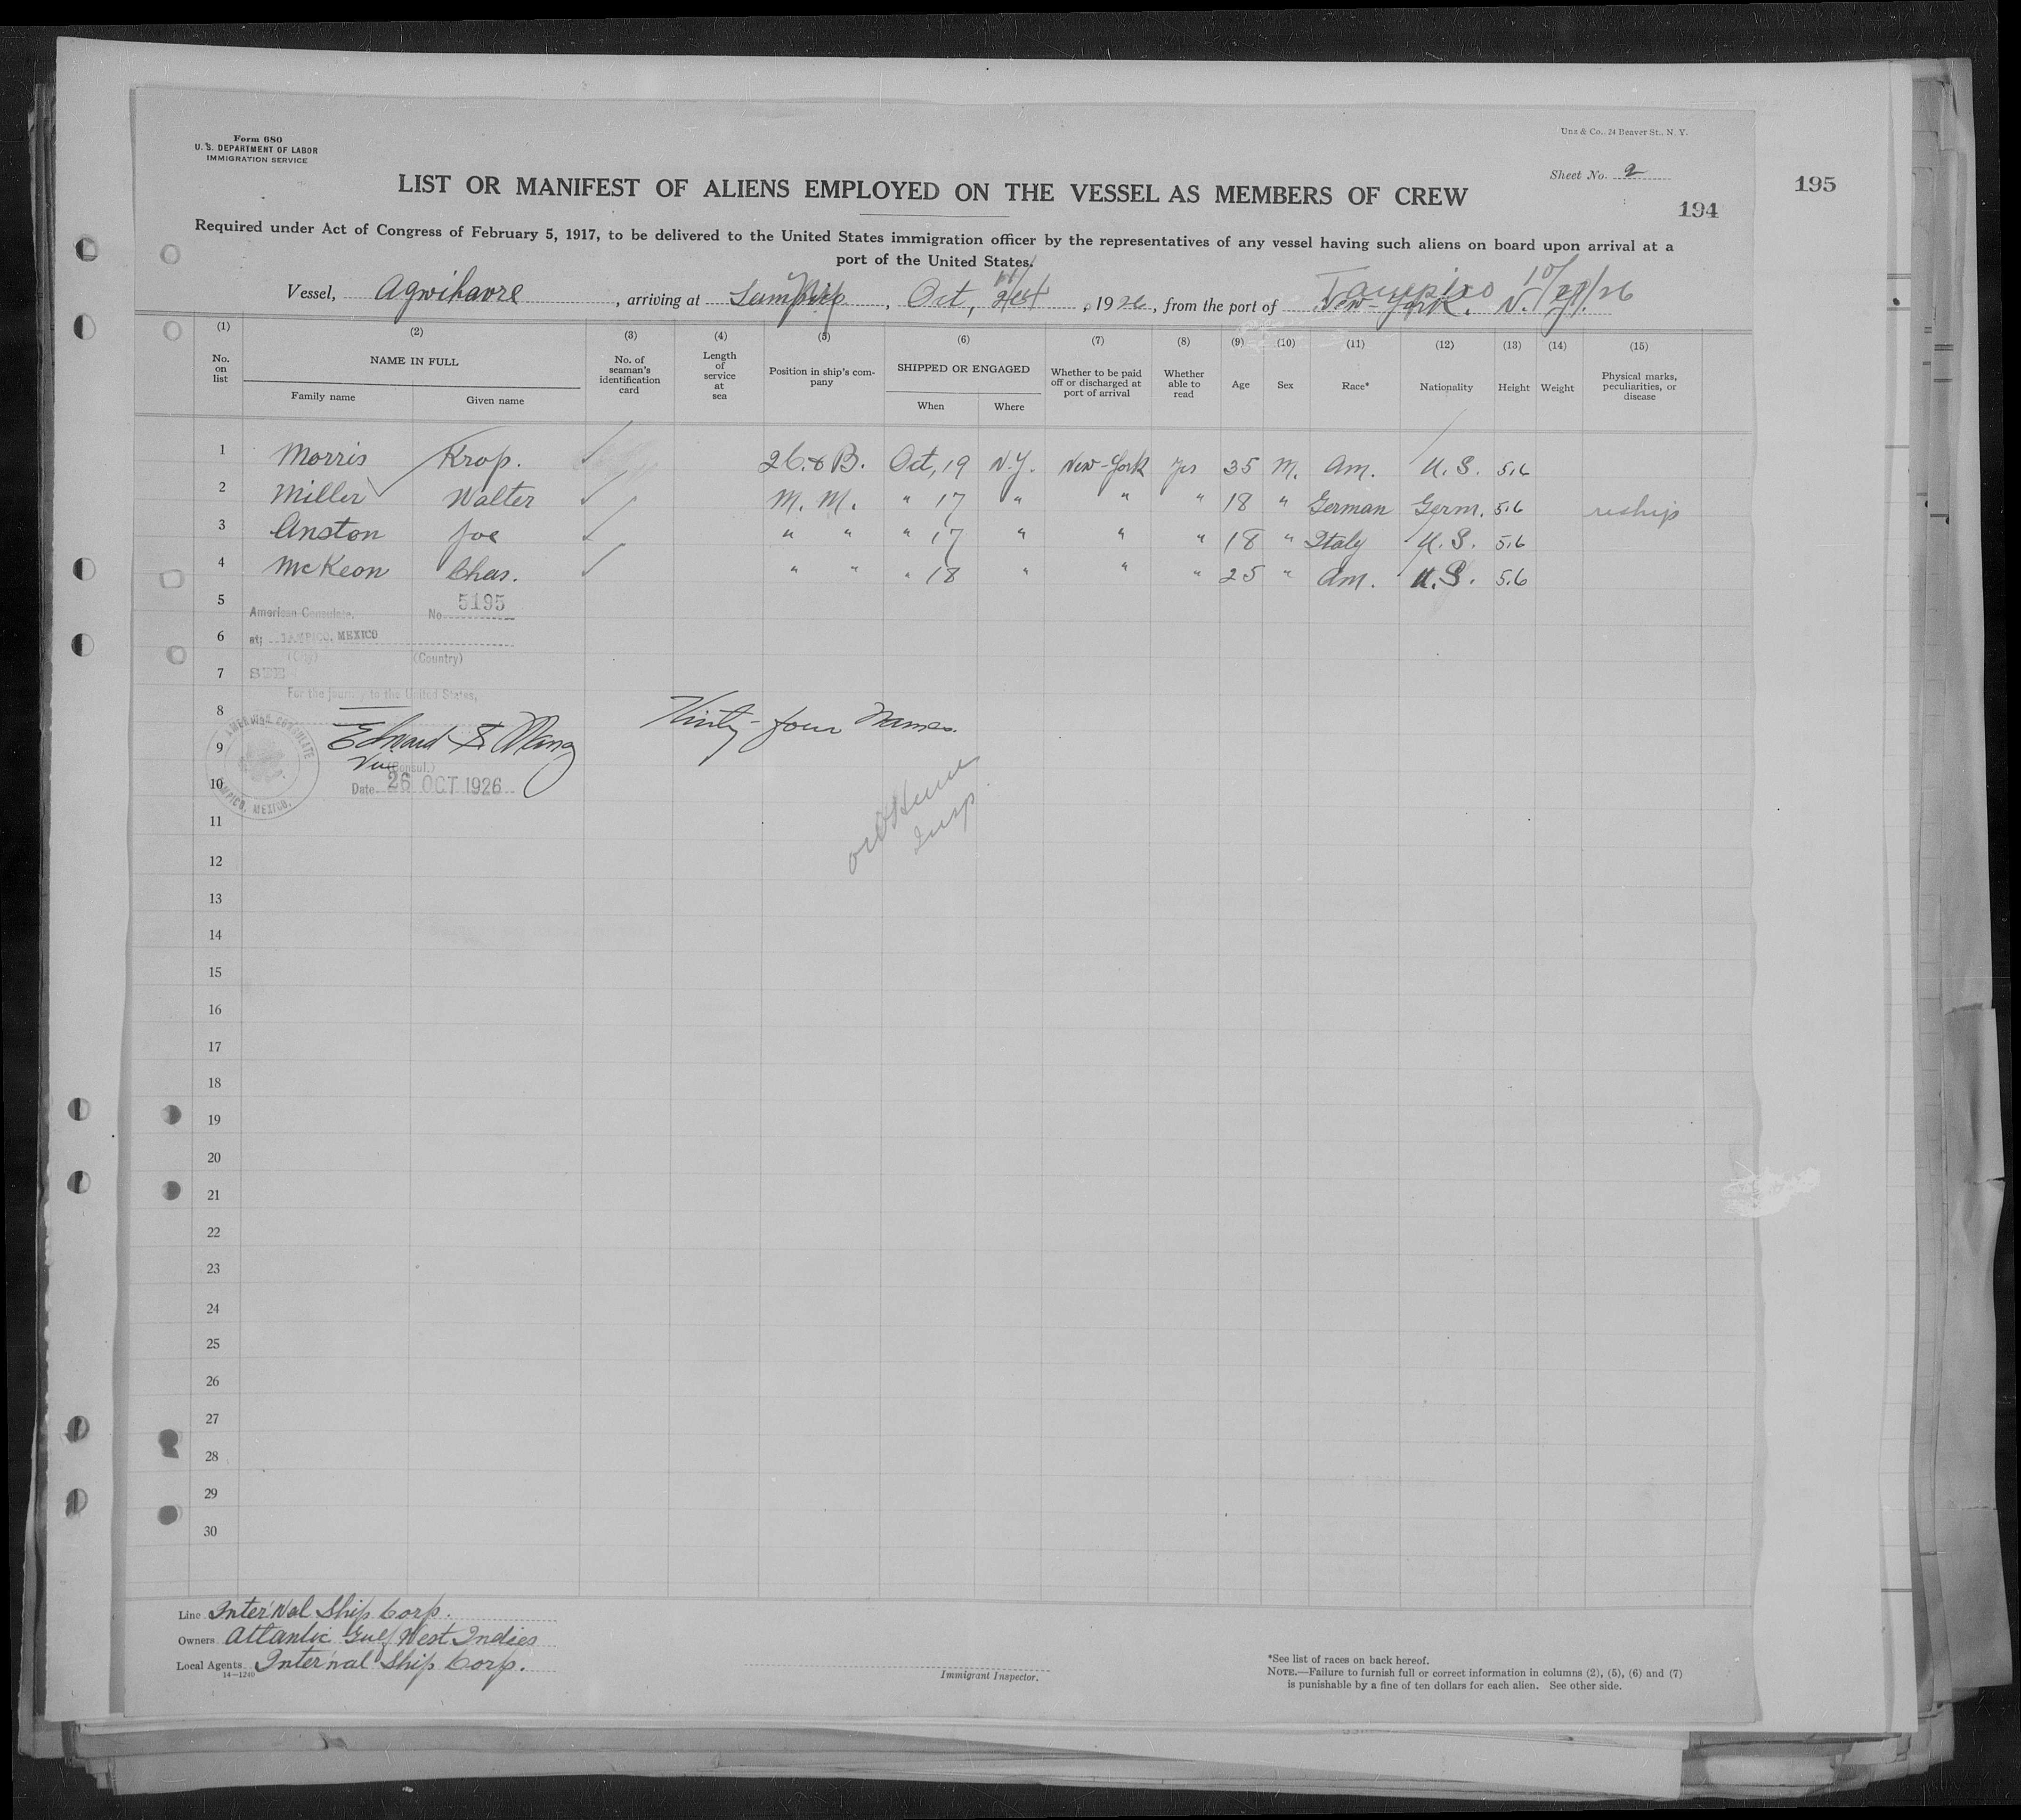 Form 680
U. S. DEPARTMENT OF LABOR
IMMIGRATION SERVICE
Unz & Co., 24 Beaver St., N. Y.
Sheet No. 2
195
LIST OR MANIFEST OF ALIENS EMPLOYED ON THE VESSEL AS MEMBERS OF CREW
194
Required under Act of Congress of February 5, 1917, to be delivered to the United States immigration officer by the representatives of any vessel having such aliens on board upon arrival at a
port of the United States.
Tampico 10/27/26
Vessel, Agwihavre, arriving at, Oct, , 1926, from the port of New-York. N.Y.
(1) (2) (3) (4) (5) (6) (7) (8) (9) (10) (11) (12) (13) (14) (15)
No. on list
NAME IN FULL
Family name Given name
No. of seaman's identification card
Length of service at sea
Position in ship's company
SHIPPED OR ENGAGED
When Where
Whether to be paid off or discharged at port of arrival
Whether able to read
Age Sex Race* Nationality Height Weight
Physical marks, peculiarities, or disease
1 Morris Krop. Oct, 19 N.Y. New-York Yes 35 M. Am. U.S. 5.6
2 Miller Walter M. M. " 17 " " " 18 " German Germ. 5.6 reship
3 Anston Joe " " " 17 " " " 18 " Italy U.S. 5.6
4 McKeon Chas. " " " 18 " " " 25 " Am. U.S. 5.6
5
American Consulate, No. 5195
6
at; TAMPICO, MEXICO
(City) (Country)
7
SEE
For the journey to the United States,
8
Thirty-four Names.
AMERICAN CONSULATE
TAMPICO, MEXICO.
9
Edward S.
Vice (Consul.)
10
Date 26 OCT 1926
Insp
11
12
13
14
15
16
17
18
19
20
21
22
23
24
25
26
27
28
29
30
Line Inter'Nal Ship Corp.
Owners Atlantic Gulf West Indies
Local Agents Inter'nal Ship Corp.
14—1240
Immigrant Inspector.
*See list of races on back hereof.
NOTE.—Failure to furnish full or correct information in columns (2), (5), (6) and (7)
is punishable by a fine of ten dollars for each alien. See other side.